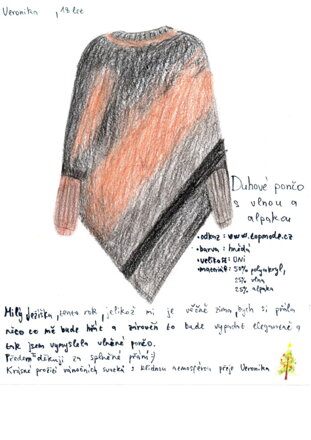 Veronika , 17 let
Duhové pončo
s vlnou a
alpakou
• odkaz: www.topmode.cz
• barva: hnědá
• velikost: UNI
• materiál: 50% polyakryl,
25% vlna
25% alpaka
Milý Ježíšku, tento rok, jelikož mi je věčně zima, bych si přála
něco co mě bude hřát a zároveň to bude vypadat elegantně a
tak jsem vymyslela vlněné pončo.
Předem děkuji za splněné přání :)
Krásné prožití vánočních svátků s klidnou atmosférou přeje Veronika